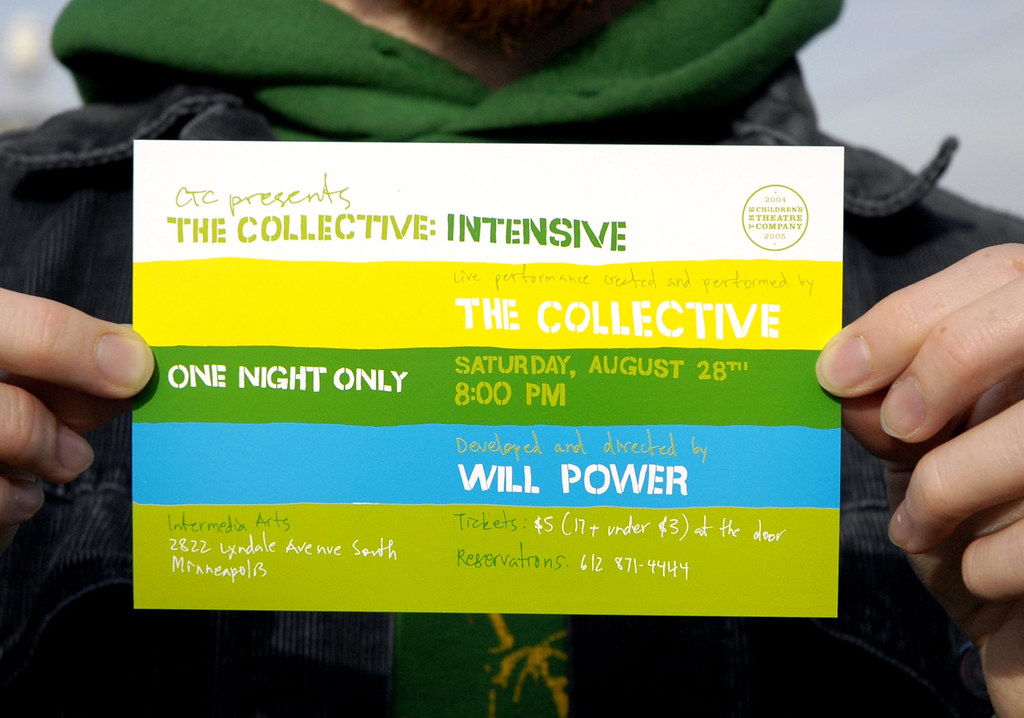 CTC presents
THE COLLECTIVE: INTENSIVE
2004
THE CHILDREN'S
THEATRE
COMPANY
2005
Live performance created and performed by
THE COLLECTIVE
ONE NIGHT ONLY
SATURDAY, AUGUST 28TH
8:00 PM
Developed and directed by
WILL POWER
Intermedia Arts
2822 Lyndale Avenue South
Minneapolis
Tickets: $5 (17+ under $3) at the door
Reservations: 612 871-4444